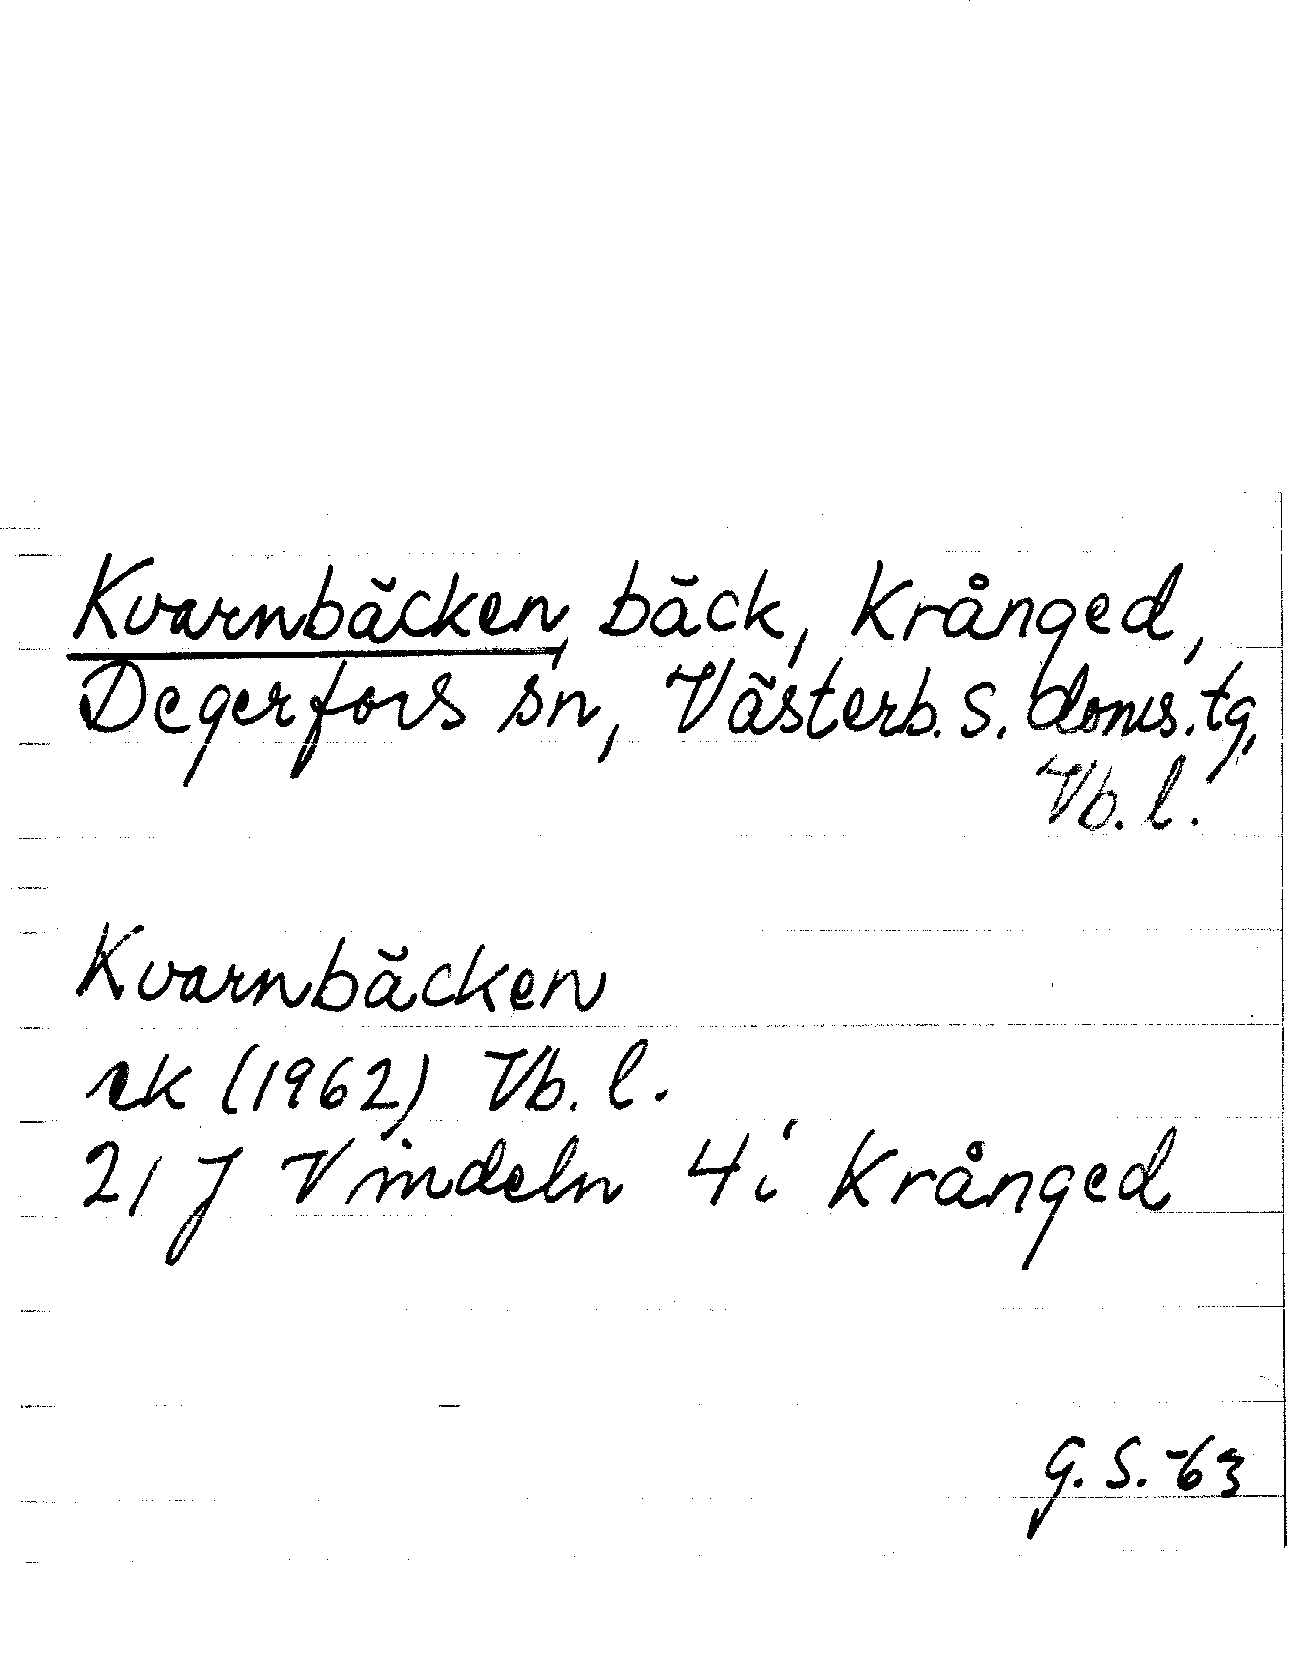 Kvarnbäcken, bäck, Krånged,
Degerfors sn, Västerb. s. doms. tg,
Vb. l.
Kvarnbäcken
rk (1962) Vb. l.
21 J Vindeln 4i Krånged
G. S. -63